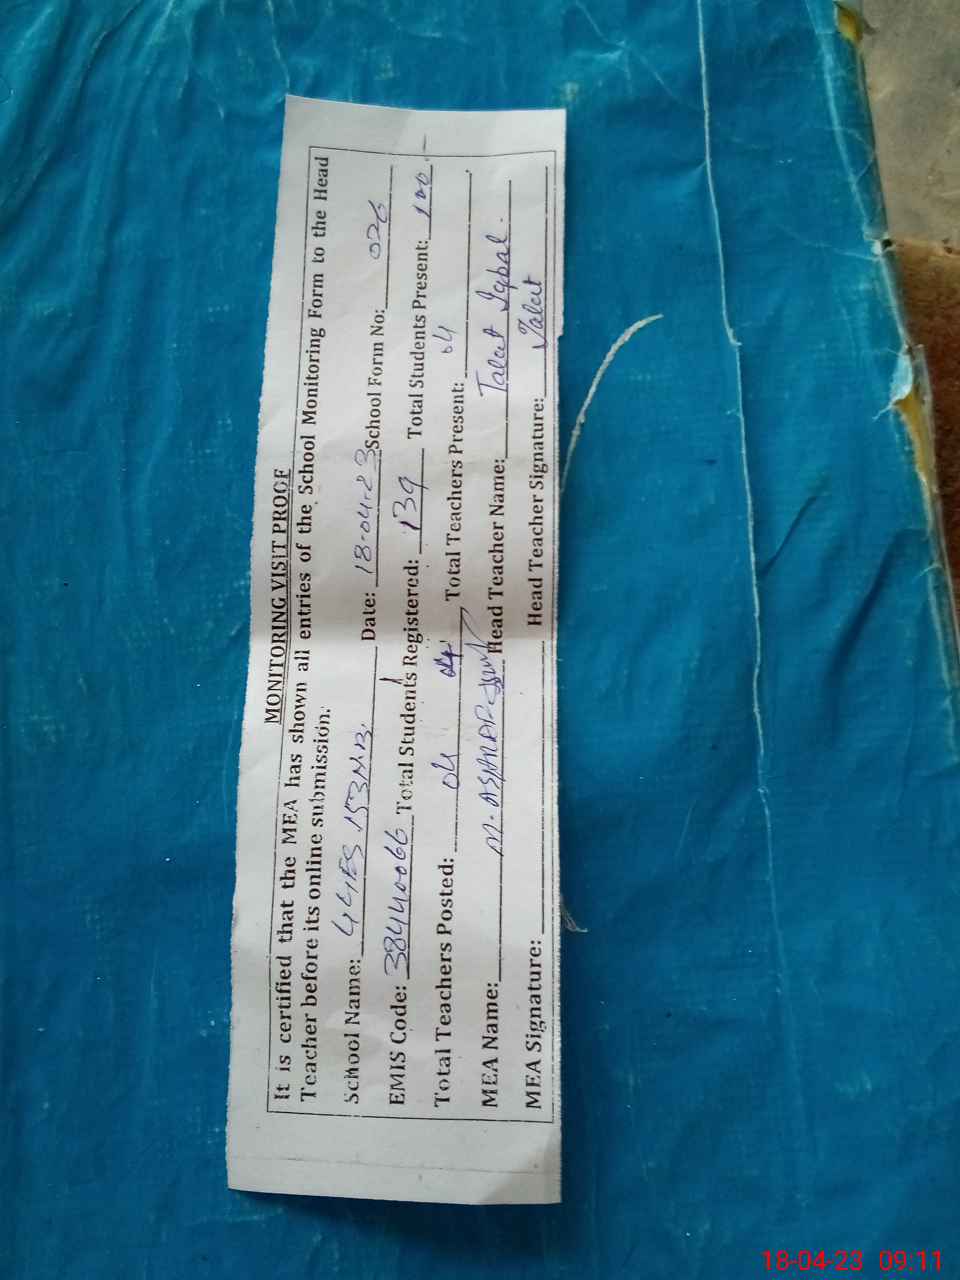 MONITORING VISIT PROOF
It is certified that the MEA has shown all entries of the School Monitoring Form to the Head
Teacher before its online submission.
School Name: 153 N.B. Date: 18-04-23 School Form No: 026
EMIS Code: 38440066 Total Students Registered: 139 Total Students Present: 100
Total Teachers Posted: 04 04 Total Teachers Present: 04
MEA Name: M. Head Teacher Name: Talat Iqbal.
MEA Signature: Head Teacher Signature: Talat
18-04-23 09:11